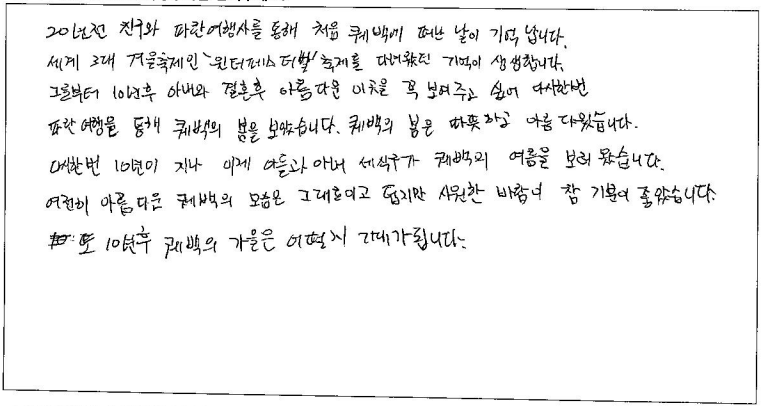 20년전 친구와 파란여행사를 통해 처음 퀘백에 떠난 날이 기억 납니다.
세계 3대 겨울축제인 '윈터페스터벌' 축제를 다녀왔던 기억이 생생합니다.
그로부터 10년후 아내와 결혼후 아름다운 이곳을 꼭 보여주고 싶어 다시한번
파란여행을 통해 퀘백의 봄을 보았습니다. 퀘백의 봄은 따뜻하고 아름다웠습니다.
다시한번 10년이 지나 이제 아들과 아내 세식구가 퀘백의 여름을 보러 왔습니다.
여전히 아름다운 퀘백의 모습은 그대로이고 덥지만 시원한 바람이 참 기분이 좋았습니다.
또 10년후 퀘백의 가을은 어떨지 기대가 됩니다.